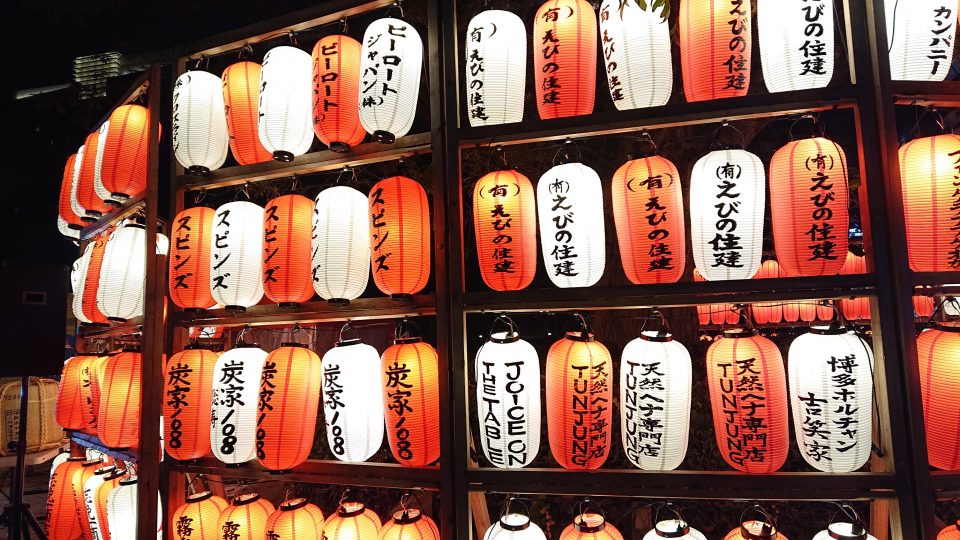 ビーロート
ビーロート
ジャパン㈱
(有)えびの住建
(有)えびの住建
えびの住建
えびの住建
えびの住建
カンパニー
スピンズ
スピンズ
スピンズ
スピンズ
スピンズ
(有)えびの住建
(有)えびの住建
(有)えびの住建
(有)えびの住建
(有)えびの住建
炭家108
炭家108
炭家108
炭家108
炭家108
JOICE ON
THE TABLE
天然ヘナ専門店
TUNJUNG
天然ヘナ専門店
TUNJUNG
天然ヘナ専門店
TUNJUNG
博多ホルチャン
吉笑家
霧
霧